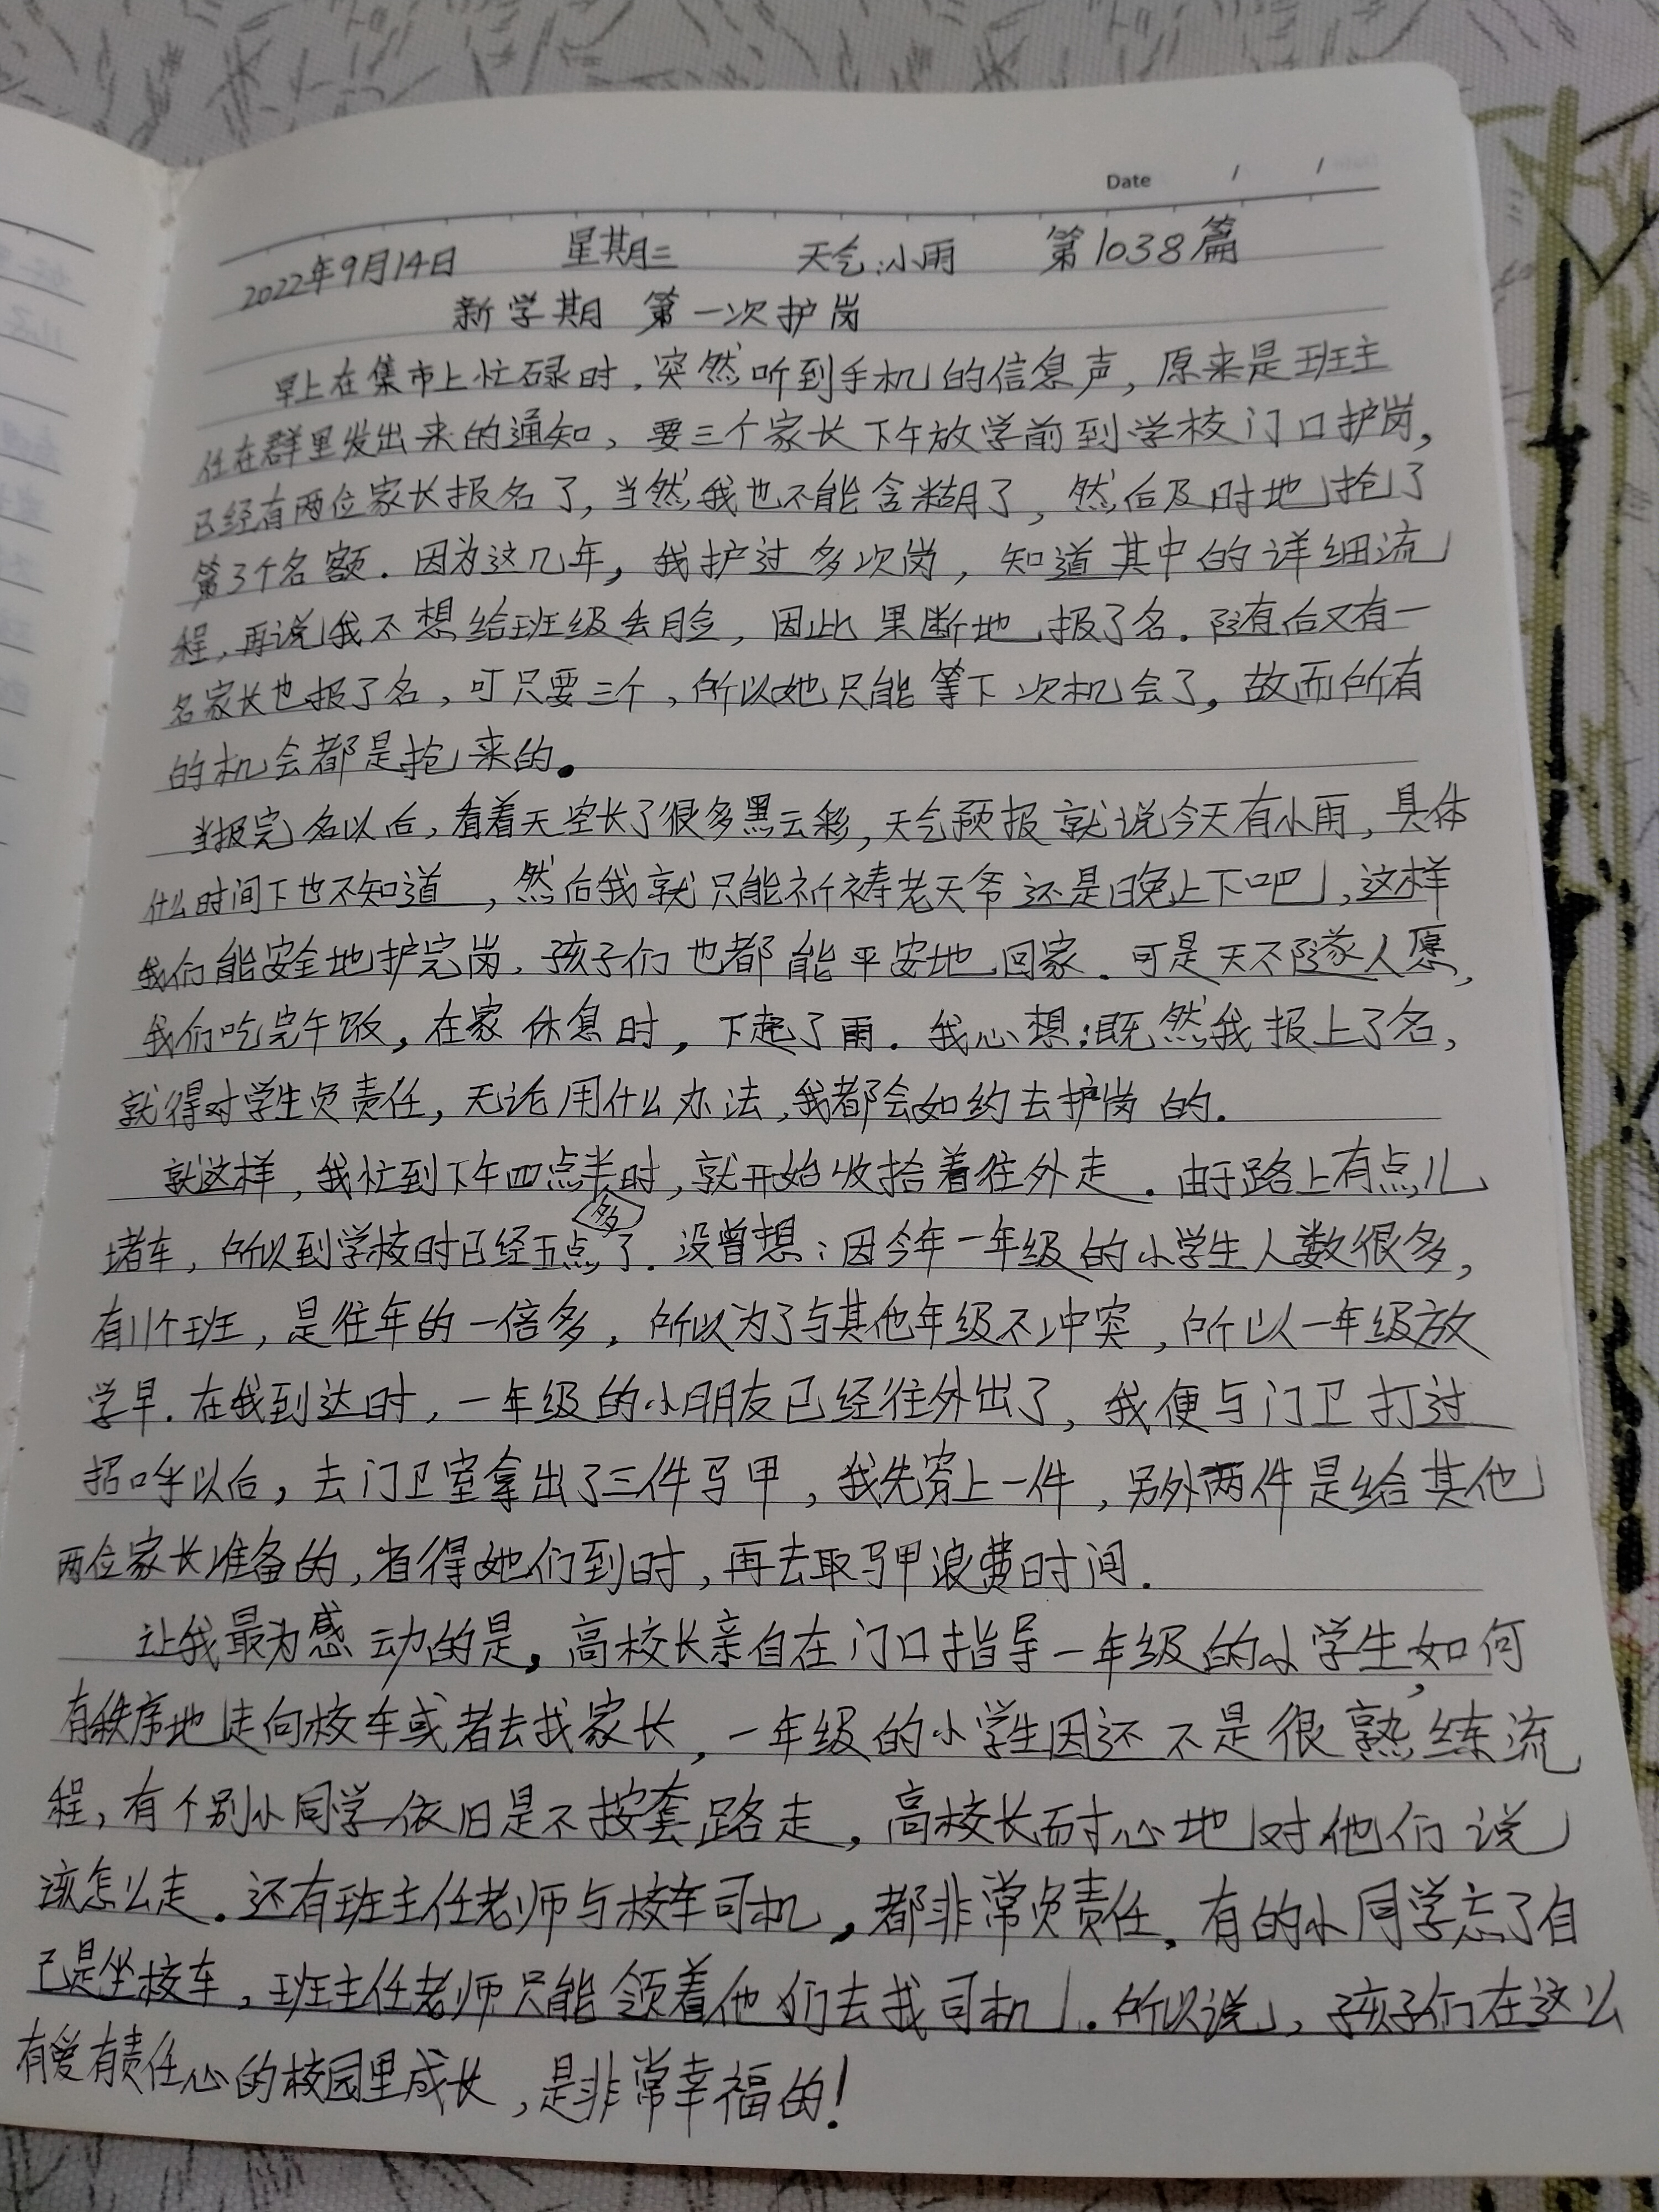 Date / /
2022年9月14日 星期三 天气:小雨 第1038篇
新学期 第一次护岗
早上在集市上忙碌时,突然听到手机的信息声,原来是班主
任在群里发出来的通知,要三个家长下午放学前到学校门口护岗,
已经有两位家长报名了,当然我也不能含糊了,然后及时地抢了
第3个名额.因为这几年,我护过多次岗,知道其中的详细流
程,再说我不想给班级丢脸,因此果断地报了名.随后又有一
名家长也报了名,可只要三个,所以她只能等下次机会了,故而所有
的机会都是抢来的。
当报完名以后,看着天空长了很多黑云彩,天气预报就说今天有小雨,具体
什么时间下也不知道,然后我就只能祈祷老天爷还是晚上下吧,这样
我们能安全地护完岗,孩子们也都能平安地回家.可是天不隧人愿,
我们吃完午饭,在家休息时,下起了雨.我心想:既然我报上了名,
就得对学生负责任,无论用什么办法,我都会如约去护岗的.
就这样,我忙到下午四点半时,就开始收拾着往外走.由于路上有点儿
堵车,所以到学校时已经五点多了.没曾想:因今年一年级的小学生人数很多,
有11个班,是往年的一倍多,所以为了与其他年级不冲突,所以一年级放
学早.在我到达时,一年级的小朋友已经往外出了,我便与门卫打过
招呼以后,去门卫室拿出了三件马甲,我先穿上一件,另外两件是给其他
两位家长准备的,省得她们到时,再去取马甲浪费时间.
让我最为感动的是,高校长亲自在门口指导一年级的小学生,如何
有秩序地走向校车或者去找家长,一年级的小学生因还不是很熟练流
程,有个别小同学依旧是不按套路走,高校长耐心地对他们说
该怎么走.还有班主任老师与校车司机,都非常负责任.有的小同学忘了自
己是坐校车,班主任老师只能领着他们去找司机.所以说,孩子们在这么
有爱有责任心的校园里成长,是非常幸福的!